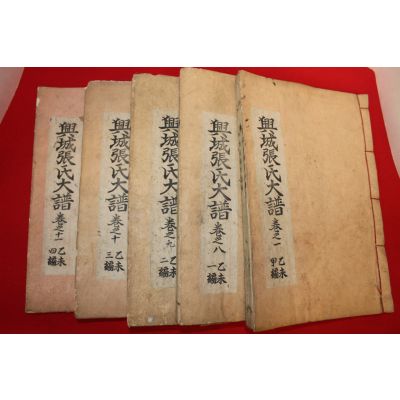 興城張氏大譜 卷之一 乙未 甲編
興城張氏大譜 卷之八 乙未 一編
興城張氏大譜 卷之九 乙未 二編
興城張氏大譜 卷之十 乙未 三編
興城張氏大譜 卷之十一 乙未 四編